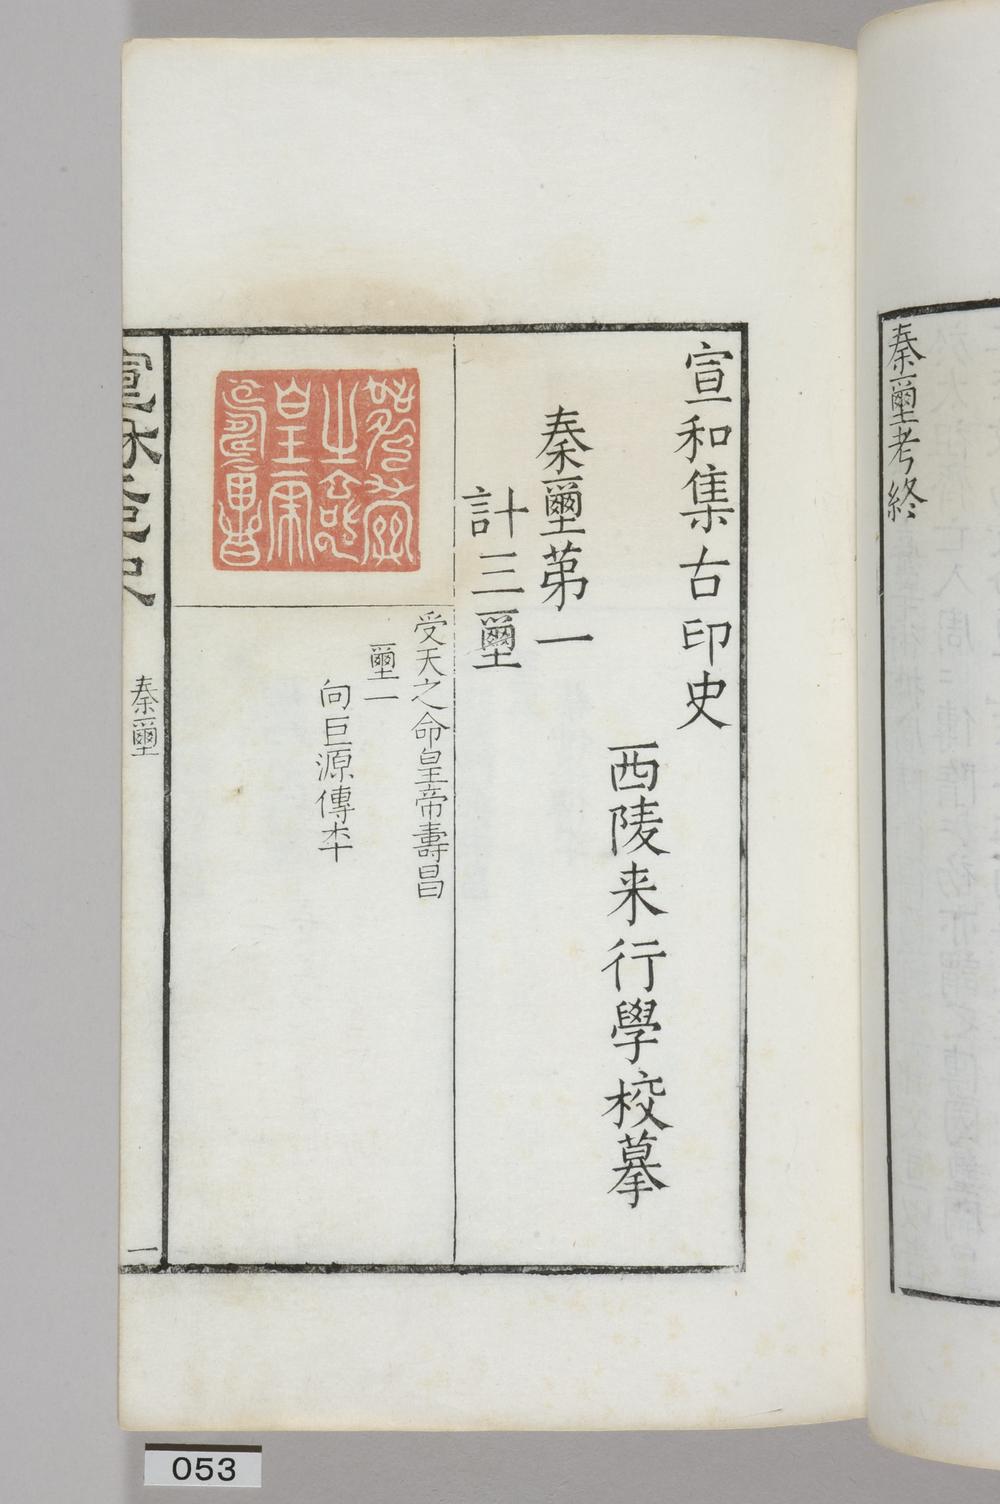 秦璽考終
宣和集古印史
西陵来行學校摹
秦璽苐一
計三璽
受天之命皇帝壽昌
璽一
向巨源傳本
宣和印史
秦璽
一
053